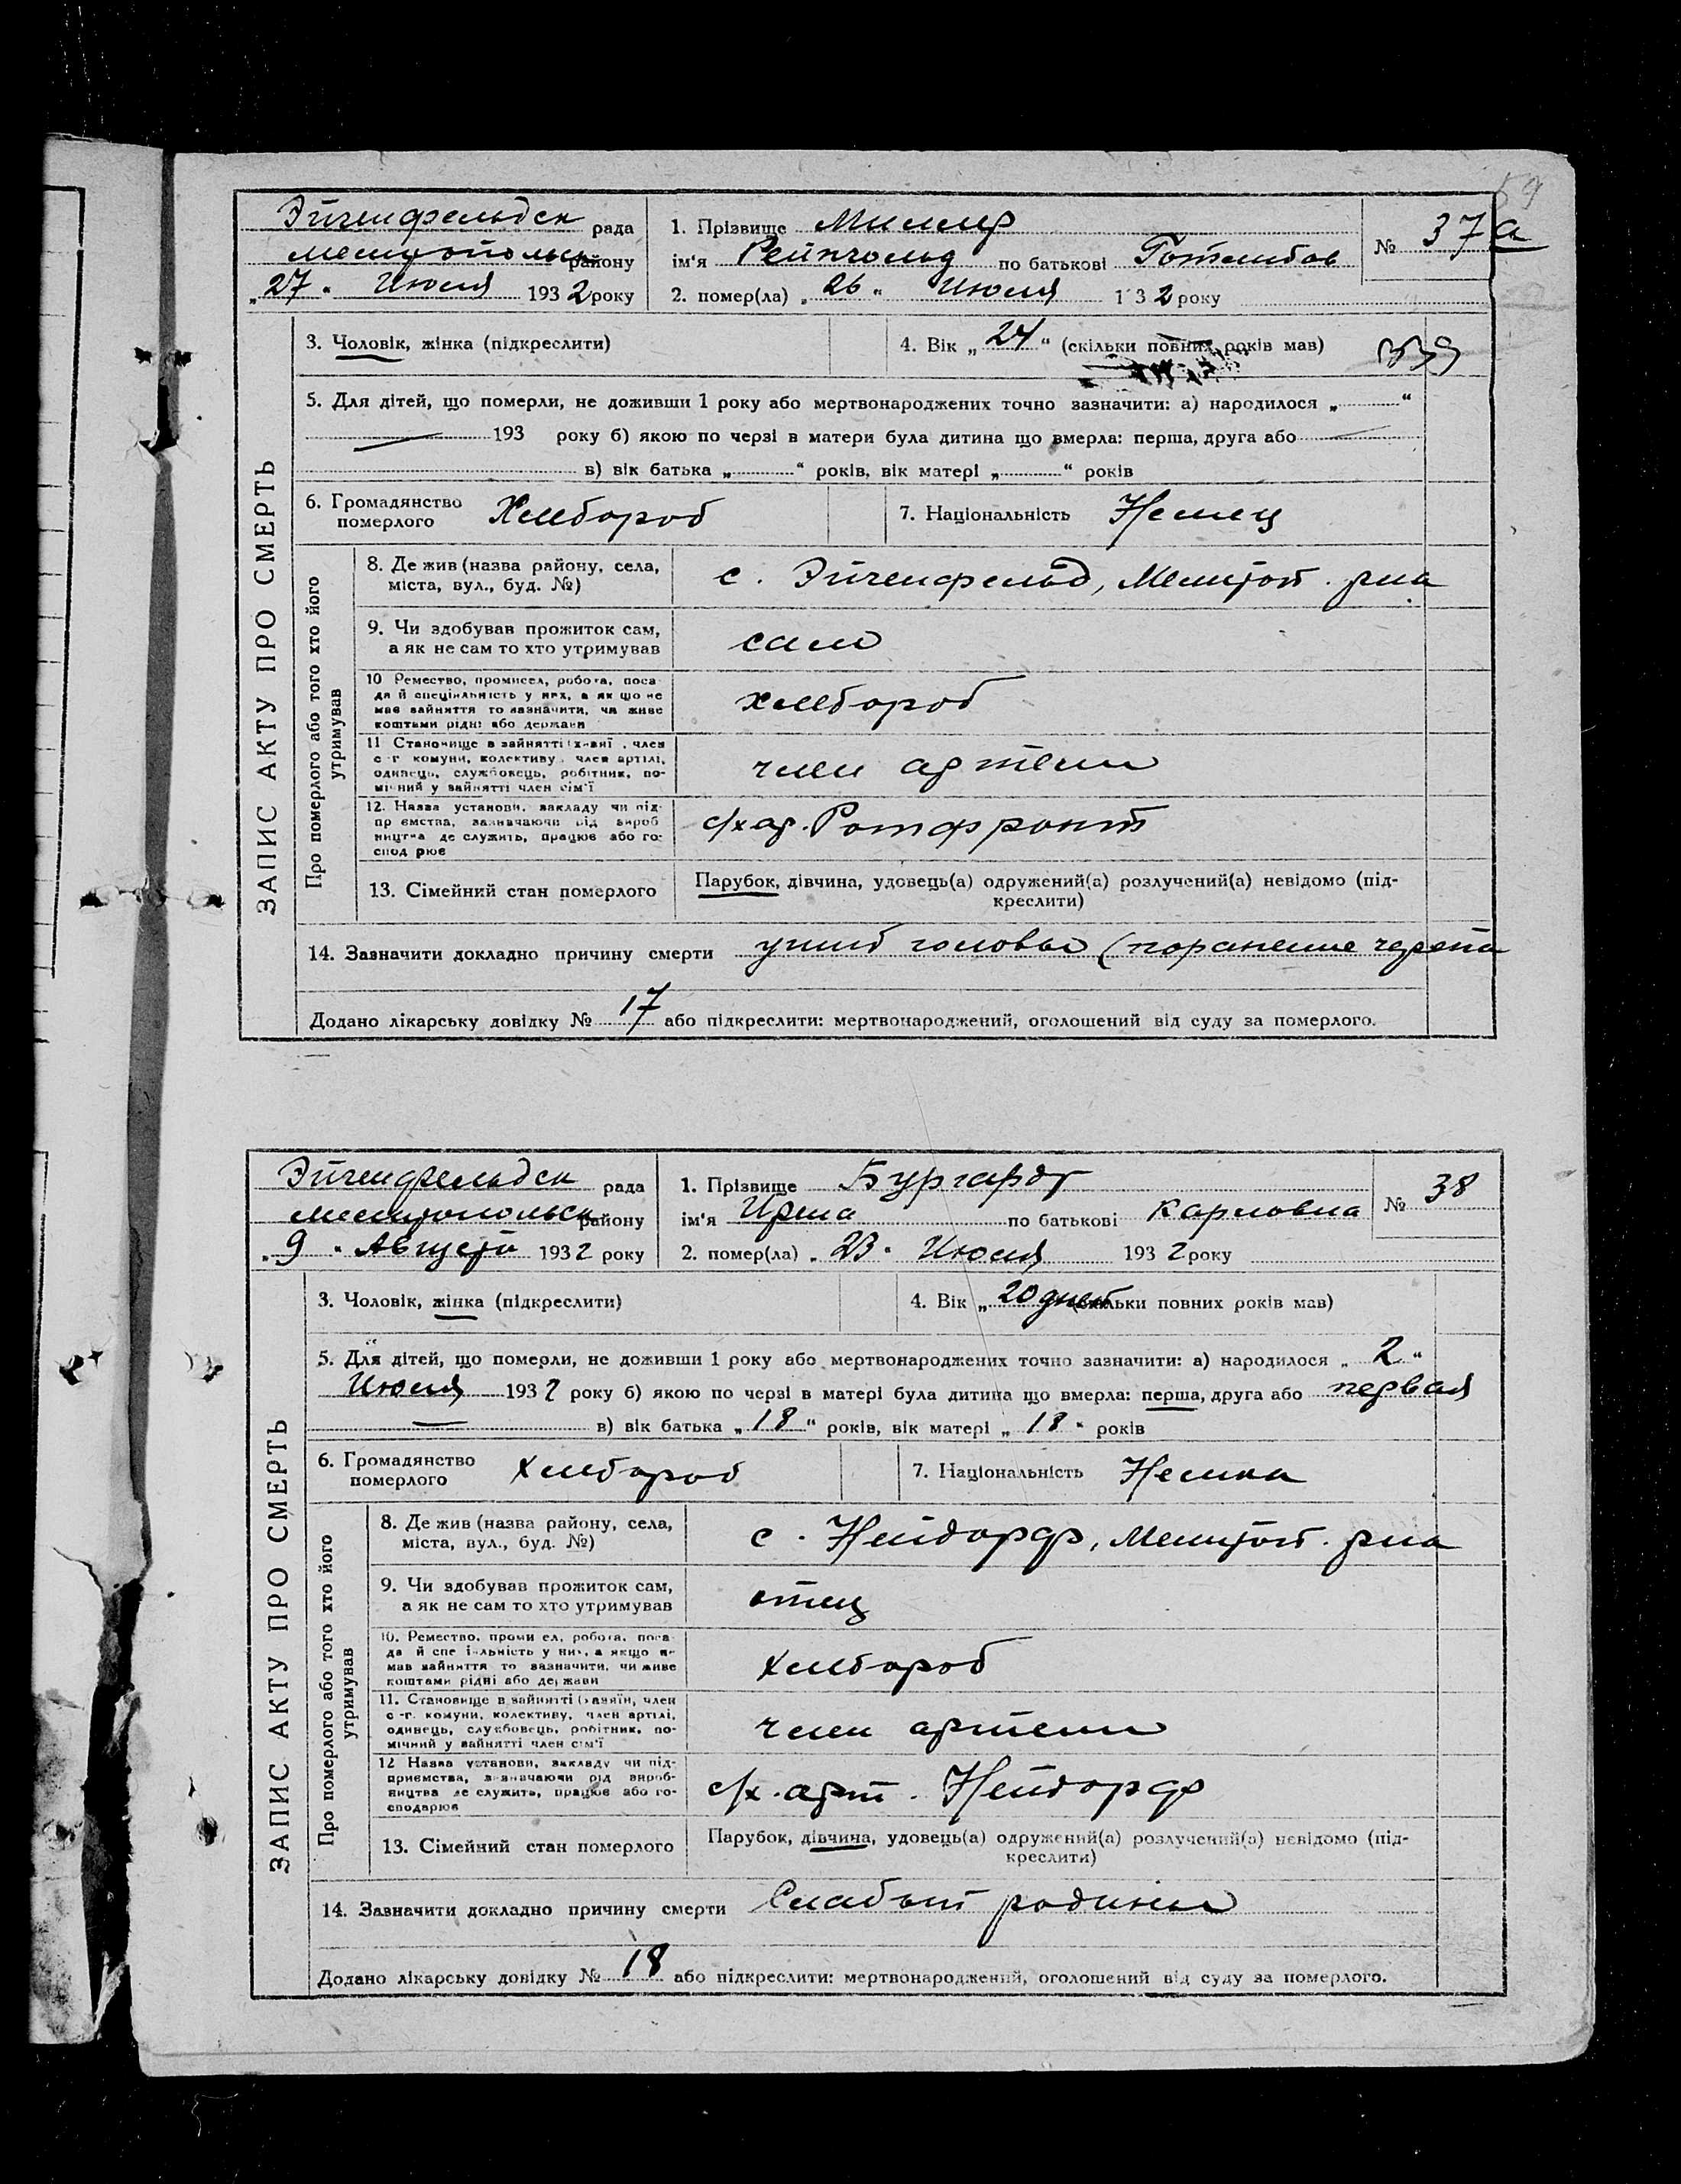 59
Эйгенфельдск рада
Мелитопольск району
„27“ Июля 1932 року
1. Прізвище Миллер
ім'я Рейнгольд по батькові Готлибов
2. помер(ла) „26“ Июля 1 3 2 року
№ 37а
ЗАПИС АКТУ ПРО СМЕРТЬ
3. Чоловік, жінка (підкреслити)
4. Вік „24“ (скільки повних років мав)
339
5. Для дітей, що померли, не доживши 1 року або мертвонароджених точно зазначити: а) народилося „ “
193 року б) якою по черзі в матери була дитина що вмерла: перша, друга або
в) вік батька „ “ років, вік матері „ “ років
6. Громадянство померлого Хлебороб
7. Національність Немец
Про померлого або того хто його утримував
8. Де жив (назва району, села,
міста, вул., буд. №)
с. Эйгенфельд, Мелитоп. р-на
9. Чи здобував прожиток сам,
а як не сам то хто утримував
сам
10 Ремество, промисел, робота, поса-
да й спеціяльність у них, а як що не
мав зайняття то зазначити, чи живе
коштами рідні або держави
хлебороб
11 Становище в зайнятті , член
с-г комуни, колективу, член артілі,
одинець, службовець, робітник, по-
мічний у зайнятті член сім'ї
член артели
12. Назва установи, закладу чи під-
пр ємства, зазначаючи від вироб
ництва де служить, працює або го-
спод рює
с/х ар. Ротфронт
13. Сімейний стан померлого
Парубок, дівчина, удовець(а) одружений(а) розлучений(а) невідомо (під-
креслити)
14. Зазначити докладно причину смерти ушиб головы (поранение черепа
Додано лікарську довідку № 17 або підкреслити: мертвонароджений, оголошений від суду за померлого.
Эйгенфельдск рада
Мелитопольск району
„9“ Августа 1932 року
1. Прізвище Бургардт
ім'я Ирма по батькові Карловна
2. помер(ла) „23“ Июля 1932 року
№ 38
ЗАПИС АКТУ ПРО СМЕРТЬ
3. Чоловік, жінка (підкреслити)
4. Вік „20 дней скільки повних років мав)
5. Для дітей, що померли, не доживши 1 року або мертвонароджених точно зазначити: а) народилося „2“
Июля 1932 року б) якою по черзі в матері була дитина що вмерла: перша, друга або первая
в) вік батька „18“ років, вік матері „18“ років
6. Громадянство померлого Хлебороб
7. Національність Немка
Про померлого або того хто його утримував
8. Де жив (назва району, села,
міста, вул., буд. №)
с. Нейдорф, Мелитоп. р-на
9. Чи здобував прожиток сам,
а як не сам то хто утримував
отец
10. Ремество, проми ел, робота, поса-
да й спе іяльність у них, а якщо не
мав зайняття то зазначити, чи живе
коштами рідні або держави
хлебороб
11. Становище в зайнятті (хазяїн, член
с-г. комуни, колективу, член артілі,
одинець, службовець, робітник, по-
мічний у зайнятті член сім'ї
член артели
12 Назва установи, закладу чи під-
приємства, зазначаючи рід вироб-
ництва де служить, працює або го-
сподарює
с/х. арт. Нейдорф
13. Сімейний стан померлого
Парубок, дівчина, удовець(а) одружений(а) розлучений(а) невідомо (під-
креслити)
14. Зазначити докладно причину смерти родины
Додано лікарську довідку № 18 або підкреслити: мертвонароджений, оголошений від суду за померлого.